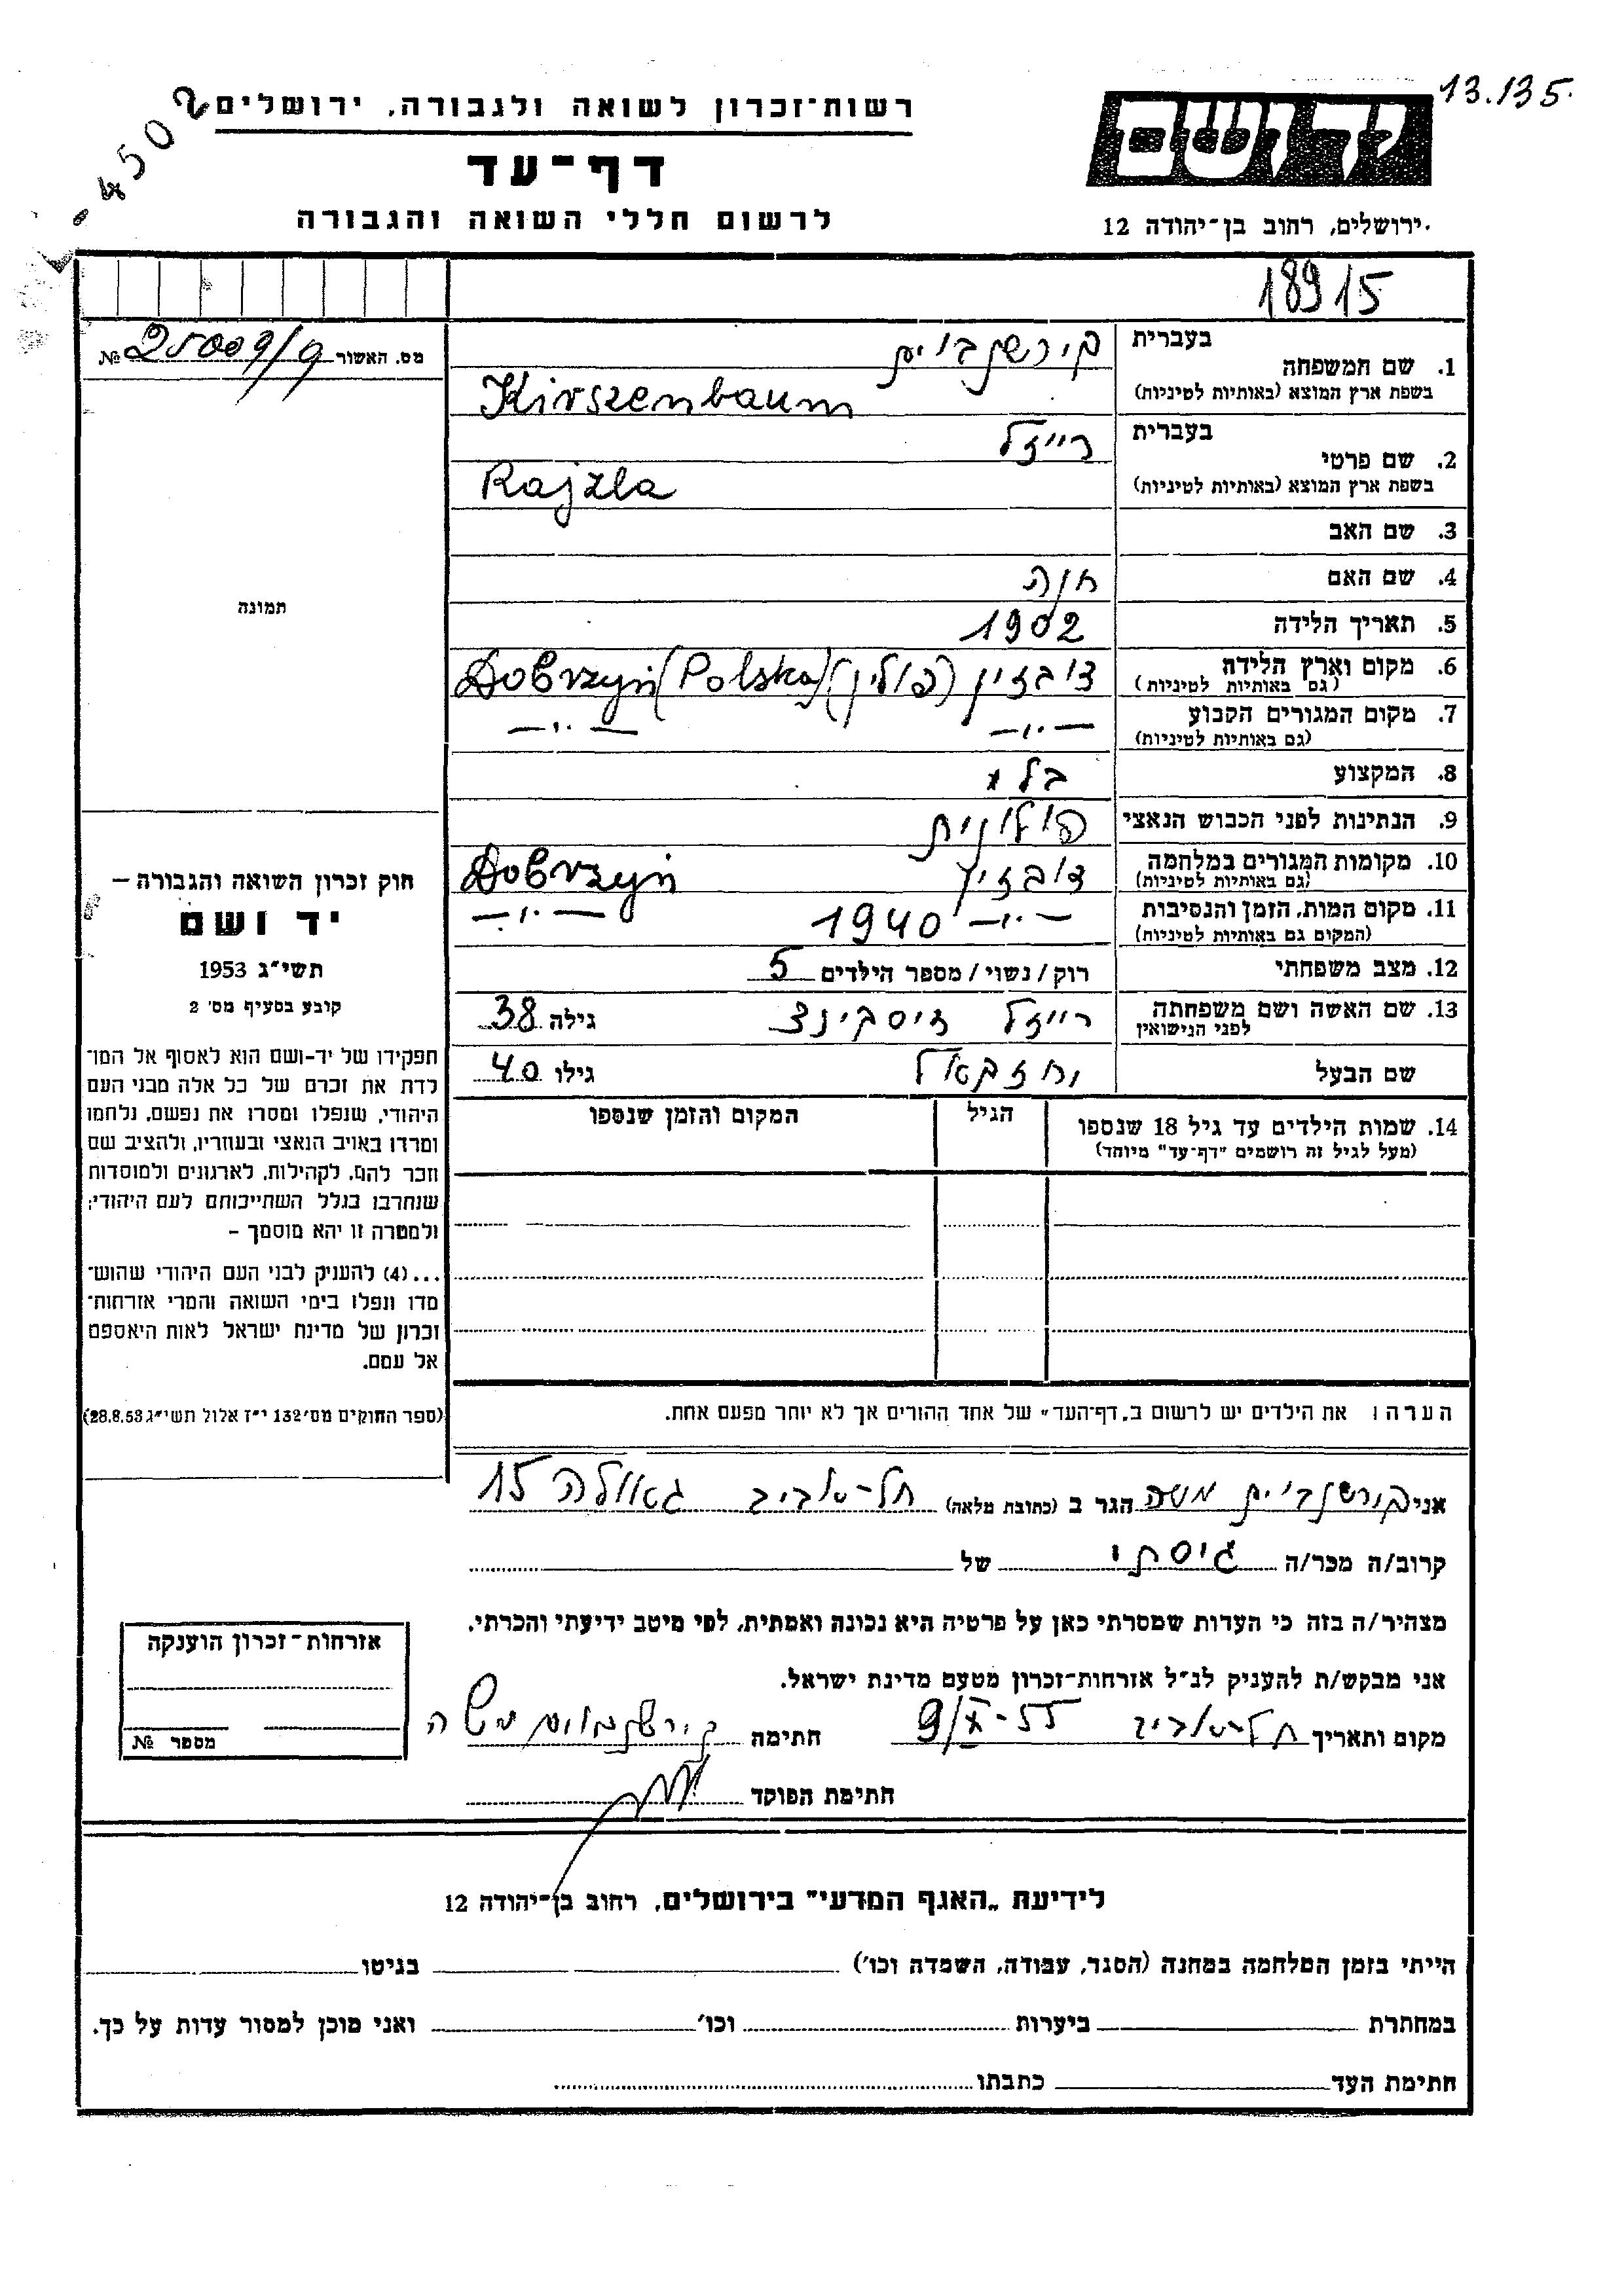 13.135
4502
יד ושם
רשות־זכרון לשואה ולגבורה, ירושלים
דף־עד
לרשום חללי השואה והגבורה
ירושלים, רחוב בן־יהודה 12
18915
מס. האשור 25009/9 №
תמונה
חוק זכרון השואה והגבורה –
יד ושם
תשי״ג 1953
קובע בסעיף מס׳ 2
תפקידו של יד-ושם הוא לאסוף אל המו־
לדת את זכרם של כל אלה מבני העם
היהודי, שנפלו ומסרו את נפשם, נלחמו
ומרדו באויב הנאצי ובעוזריו, ולהציב שם
וזכר להם, לקהילות, לארגונים ולמוסדות
שנחרבו בגלל השתייכותם לעם היהודי;
ולמטרה זו יהא מוסמך –
...(4) להעניק לבני העם היהודי שהוש־
מדו ונפלו בימי השואה והמרי אזרחות־
זכרון של מדינת ישראל לאות היאספם
אל עמם.
(ספר החוקים מס׳ 132 י״ז אלול תשי״ג 28.8.53)
בעברית קירשנבוים
1. שם המשפחה
בשפת ארץ המוצא (באותיות לטיניות) Kirszenbaum
בעברית רייזל
2. שם פרטי
בשפת ארץ המוצא (באותיות לטיניות) Rajzla
3. שם האב
4. שם האם חוה
5. תאריך הלידה 1902
6. מקום וארץ הלידה דוברזין (פולין) Dobrzyń (Polska)
(גם באותיות לטיניות)
7. מקום המגורים הקבוע —״— —״—
(גם באותיות לטיניות)
8. המקצוע
9. הנתינות לפני הכבוש הנאצי פולונית
10. מקומות המגורים במלחמה דוברזין Dobrzyń
(גם באותיות לטיניות)
11. מקום המות, הזמן והנסיבות —״— 1940 —״—
(המקום גם באותיות לטיניות)
12. מצב משפחתי רוק/נשוי/מספר הילדים 5
13. שם האשה ושם משפחתה רייזל גילה 38
לפני הנישואין
שם הבעל גילו 40
14. שמות הילדים עד גיל 18 שנספו הגיל המקום והזמן שנספו
(מעל לגיל זה רושמים ״דף-עד״ מיוחד)
הערה: את הילדים יש לרשום ב„דף-העד״ של אחד ההורים אך לא יותר מפעם אחת.
אני קירשנבוים משה הגר ב (כתובת מלאה) תל-אביב גאולה 15
קרוב/ה מכר/ה גיסתי של
מצהיר/ה בזה כי העדות שמסרתי כאן על פרטיה היא נכונה ואמתית, לפי מיטב ידיעתי והכרתי.
אני מבקש/ת להעניק לנ״ל אזרחות־זכרון מטעם מדינת ישראל.
מקום ותאריך תל-אביב 9/X-55 חתימה קירשנבוים משה
חתימת הפוקד
אזרחות־זכרון הוענקה
מספר №
לידיעת „האגף המדעי״ בירושלים, רחוב בן־יהודה 12
הייתי בזמן המלחמה במחנה (הסגר, עבודה, השמדה וכו׳) בגיטו
במחתרת ביערות וכו׳ ואני מוכן למסור עדות על כך.
חתימת העד כתבתו